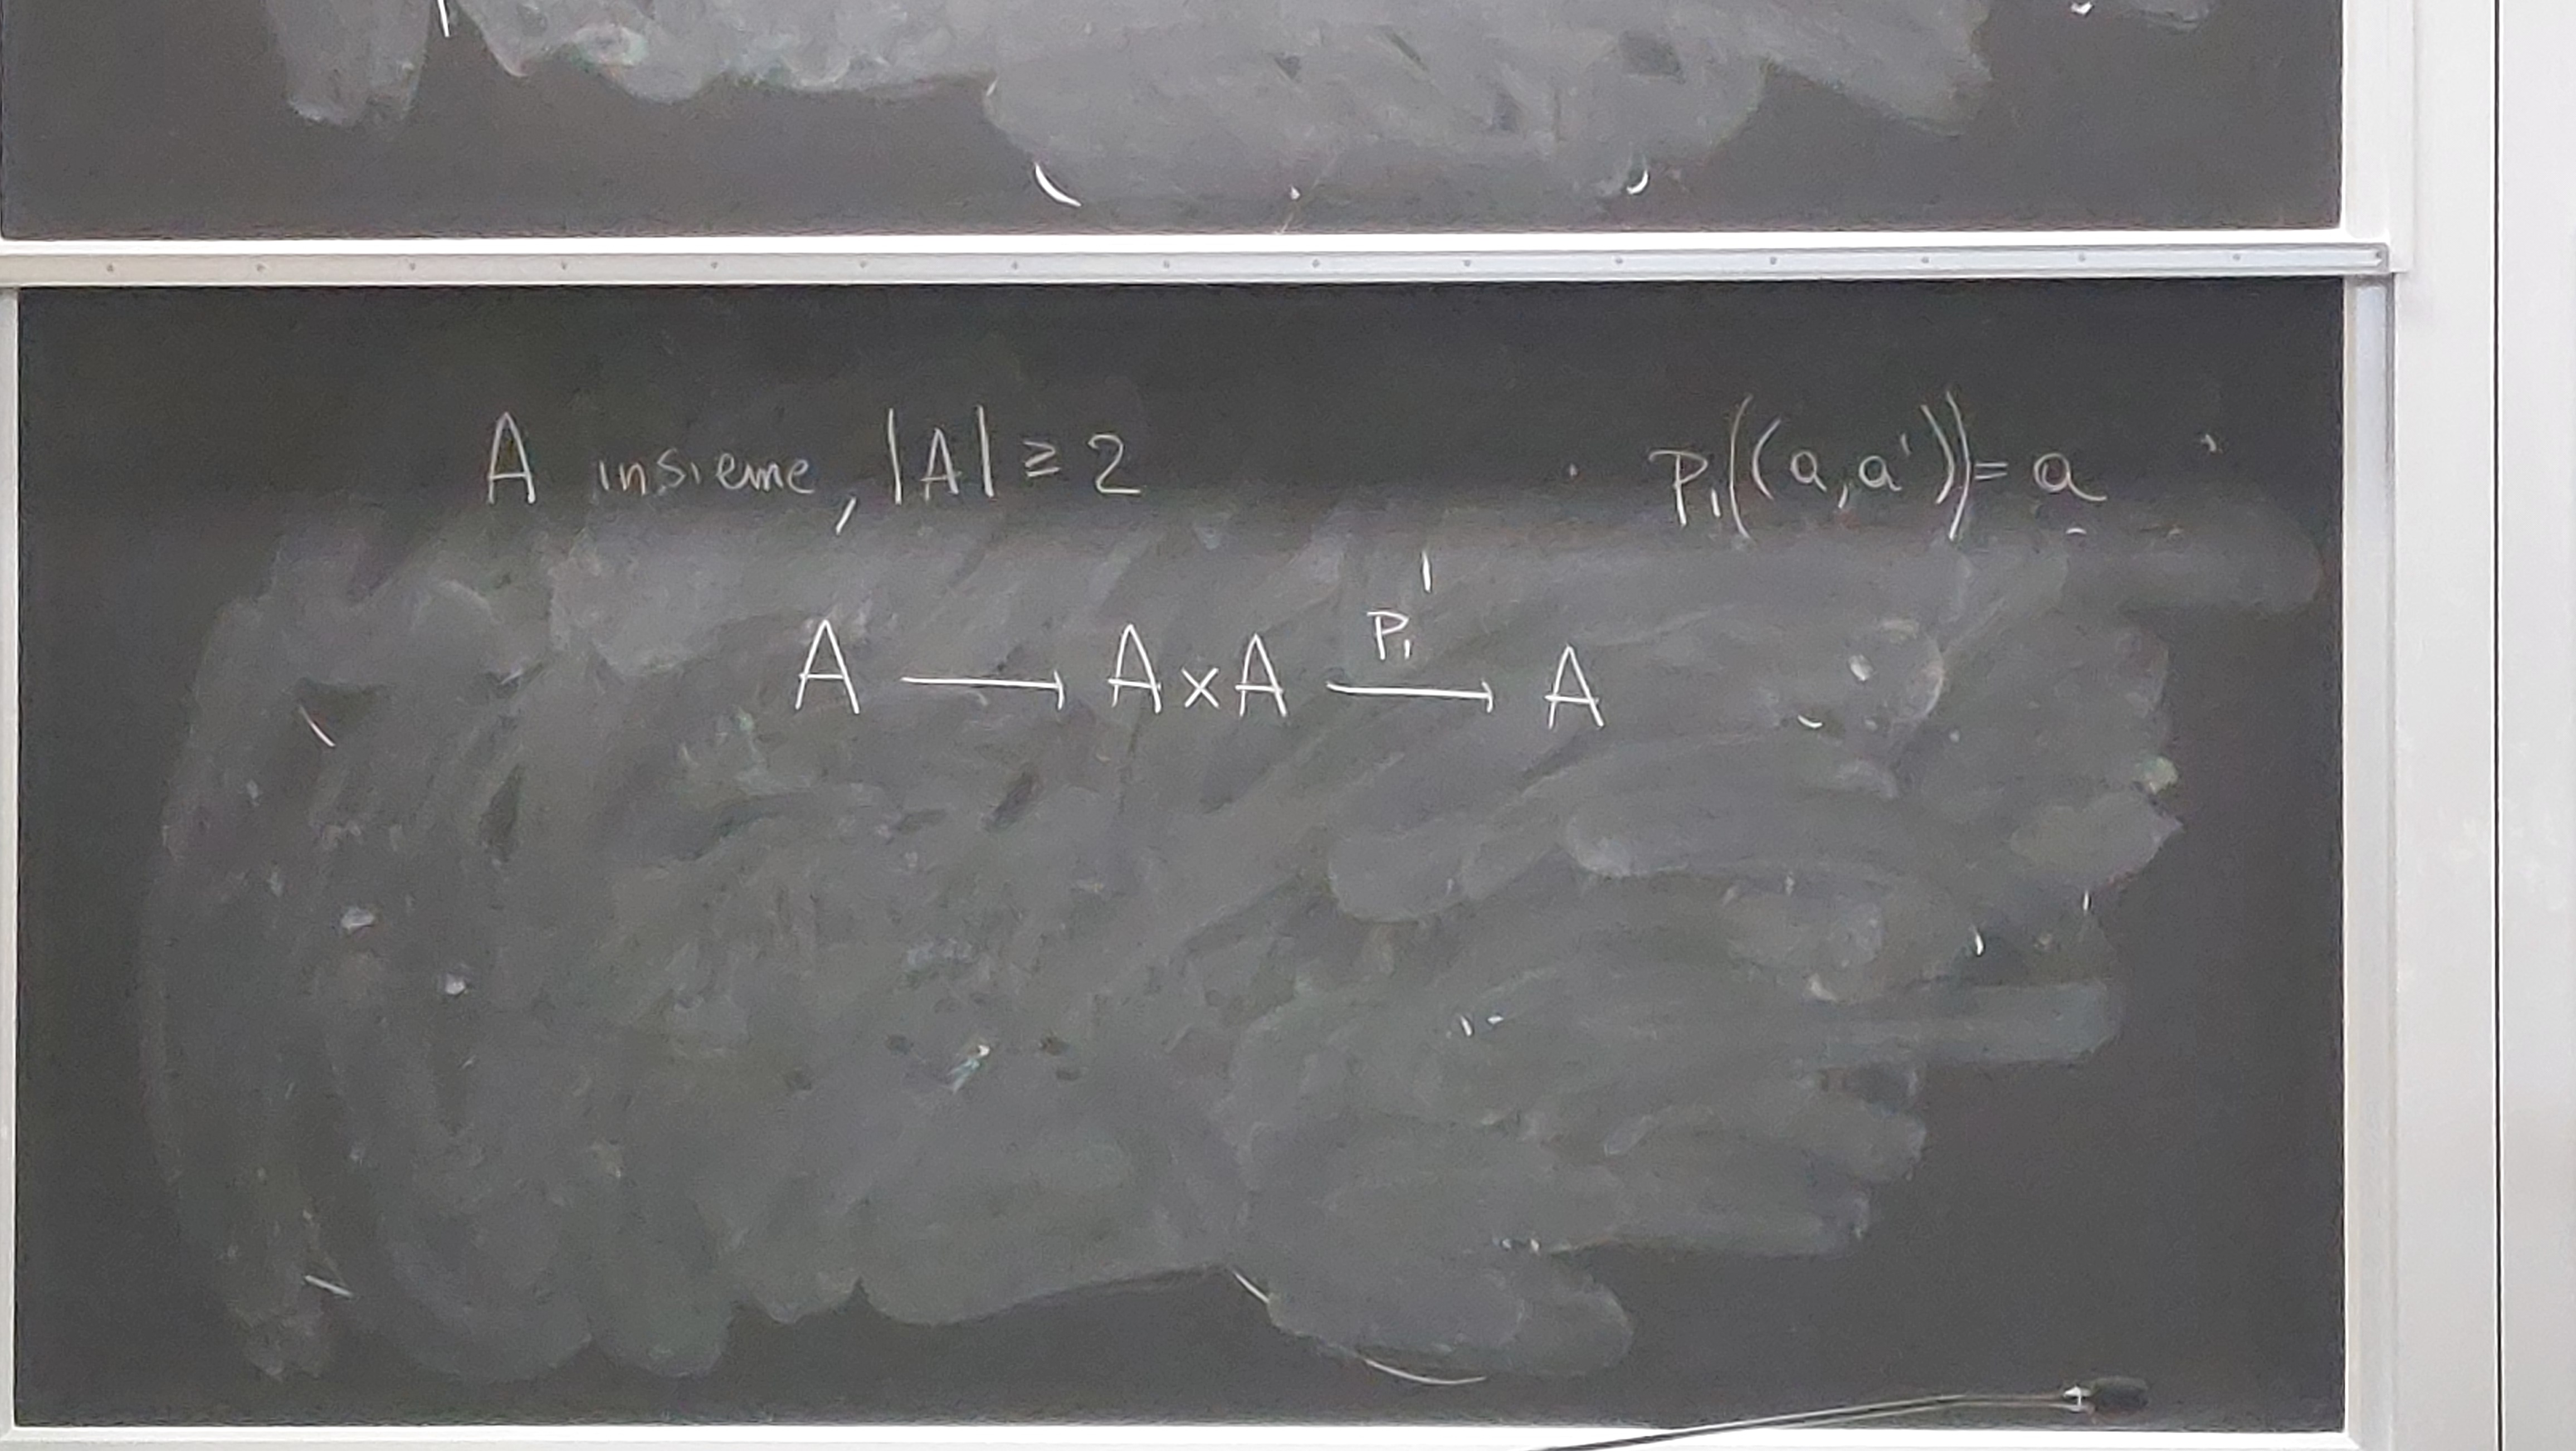 A insieme, |A| ≥ 2
p₁((a,a')) = a
A → A×A →^{p₁} A